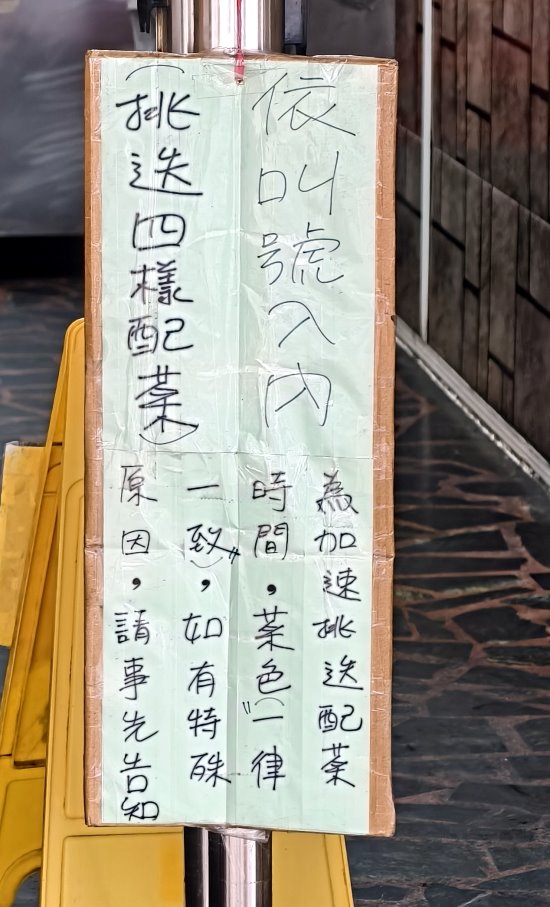 依叫號入內
(挑迭四樣配菜)
為加速挑迭配菜
時間，菜色"一律
一致"，如有特殊
原因，請事先告知